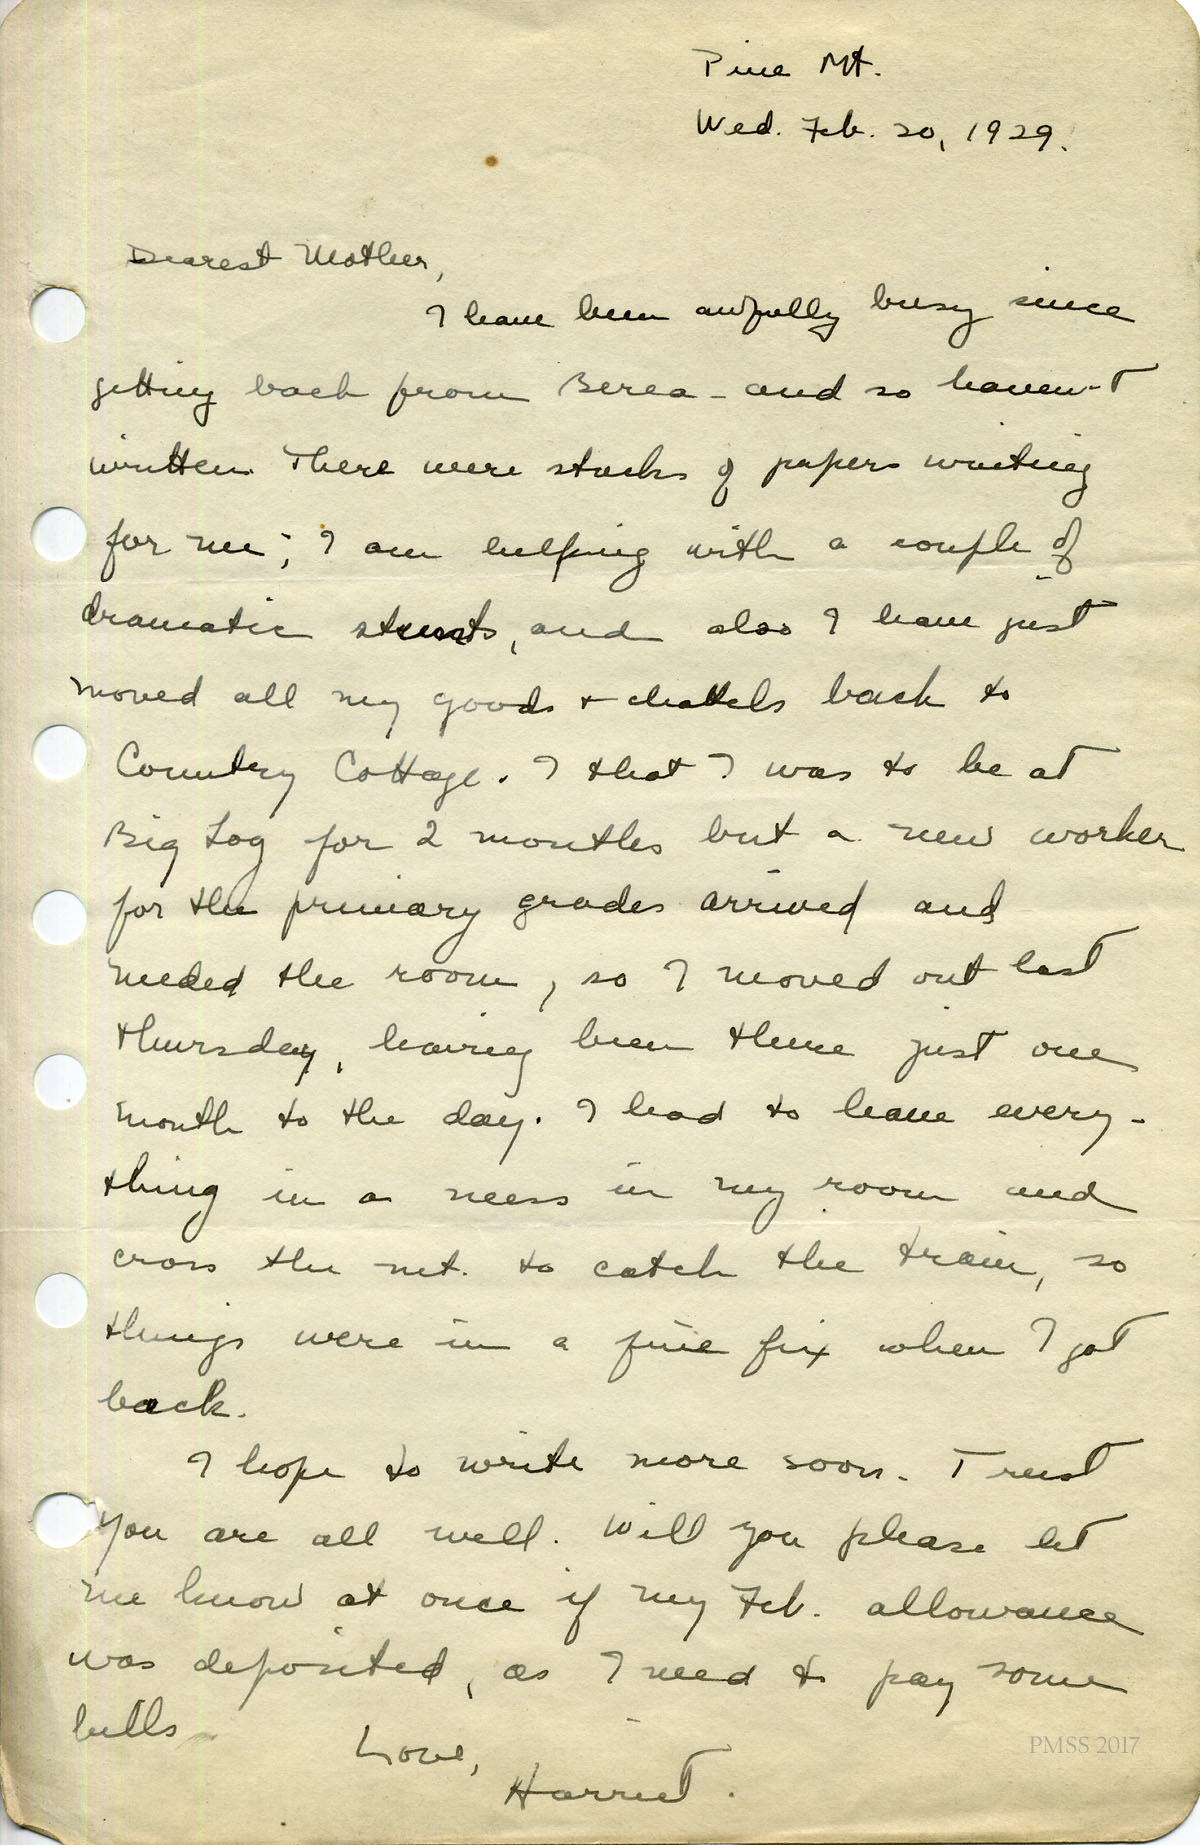 Pine Mt.
Wed. Feb. 20, 1929.
Dearest Mother,
I have been awfully busy since
getting back from Berea - and so haven't
written. There were stacks of papers waiting
for me; I am helping with a couple of
dramatic stunts, and also I have just
moved all my goods + chattels back to
Country Cottage. I that I was to be at
Big Log for 2 months but a new worker
for the primary grades arrived and
needed the room, so I moved out last
thursday, having been there just one
month to the day. I had to leave every-
thing in a mess in my room and
cross the mt. to catch the train, so
things were in a fine fix when I got
back.
I hope to write more soon. Trust
you are all well. Will you please let
me know at once if my Feb. allowance
was deposited, as I need to pay some
bills
Love,
Harriet.
PMSS 2017